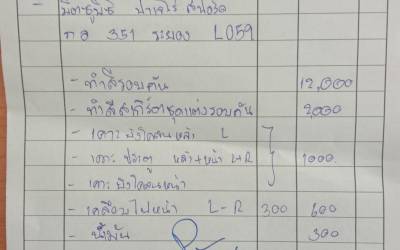 - มิตซูบิชิ ปาเจโร่ สปอร์ต
กอ 351 ระยอง L059
- ทำสีรอบคัน 12,000
- ทำสีสเกิร์ตชุดแต่งรอบคัน 2,000
- เคาะบังโคลนหลัง L
- เคาะ ประตู หลัง+หน้า L+R 1000.
- เคาะบังโคลนหน้า
- เคลือบไฟหน้า L-R 300 600
- น้ำมัน 300